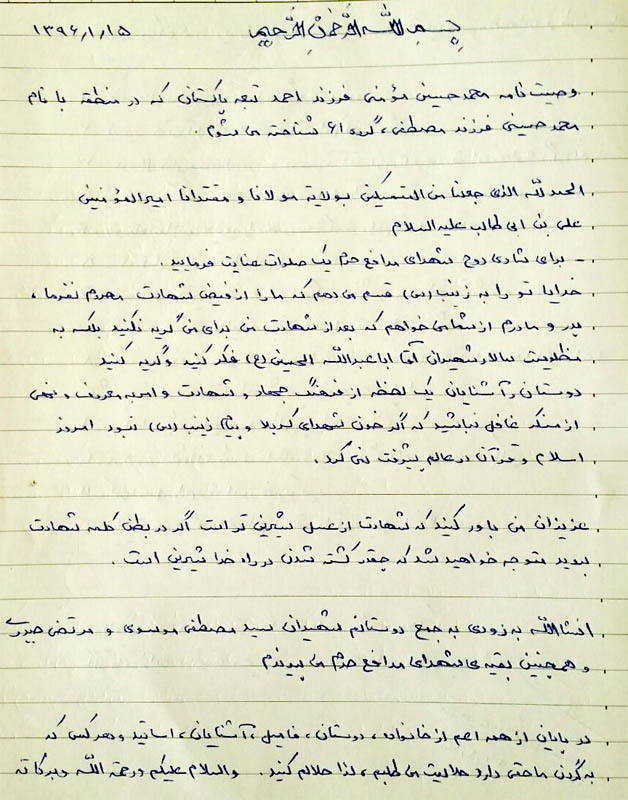 بسم الله الرحمن الرحیم ۱۳۹۶/۱/۱۵
وصیت نامه محمد حسین مؤمنی فرزند احمد تبعه پاکستان که در منطقه با نام
محمد حسینی فرزند مصطفی، گروه ۶۱ شناخته می شوم.
الحمدلله الذی جعلنا من المتمسکین بولایة مولانا و مقتدانا امیرالمؤمنین
علی بن ابی طالب علیه السلام
- برای شادی روح شهدای مدافع حرم یک صلوات عنایت فرمایید.
خدایا تو را به زینب(س) قسم می دهم که ما را از فیض شهادت محروم نفرما،
پدر و مادرم از شما می خواهم که بعد از شهادت من برای من گریه نکنید بلکه به
مظلومیت سالار شهیدان آقا اباعبدالله الحسین(ع) فکر کنید و گریه کنید
دوستان و آشنایان یک لحظه از فرهنگ جهاد و شهادت و امر به معروف و نهی
از منکر غافل نباشید که اگر خون شهدای کربلا و پیام زینب(س) نبود امروز
اسلام و قرآن در عالم پیشرفت نمی کرد.
عزیزان من باور کنید که شهادت از عسل شیرین تر است اگر در بطن کلمه شهادت
بروید متوجه خواهید شد که چقدر کشته شدن در راه خدا شیرین است.
انشاالله به زودی به جمع دوستانم شهیدان سید مصطفی موسوی و مرتضی حیدری
و همچنین بقیه ی شهدای مدافع حرم می پیوندم
در پایان از همه اعم از خانواده، دوستان، فامیل، آشنایان، اساتید و هر کس که
به گردن ما حقی دارد حلالیت می طلبم، لذا حلالم کنید. والسلام علیکم ورحمة الله وبرکاته